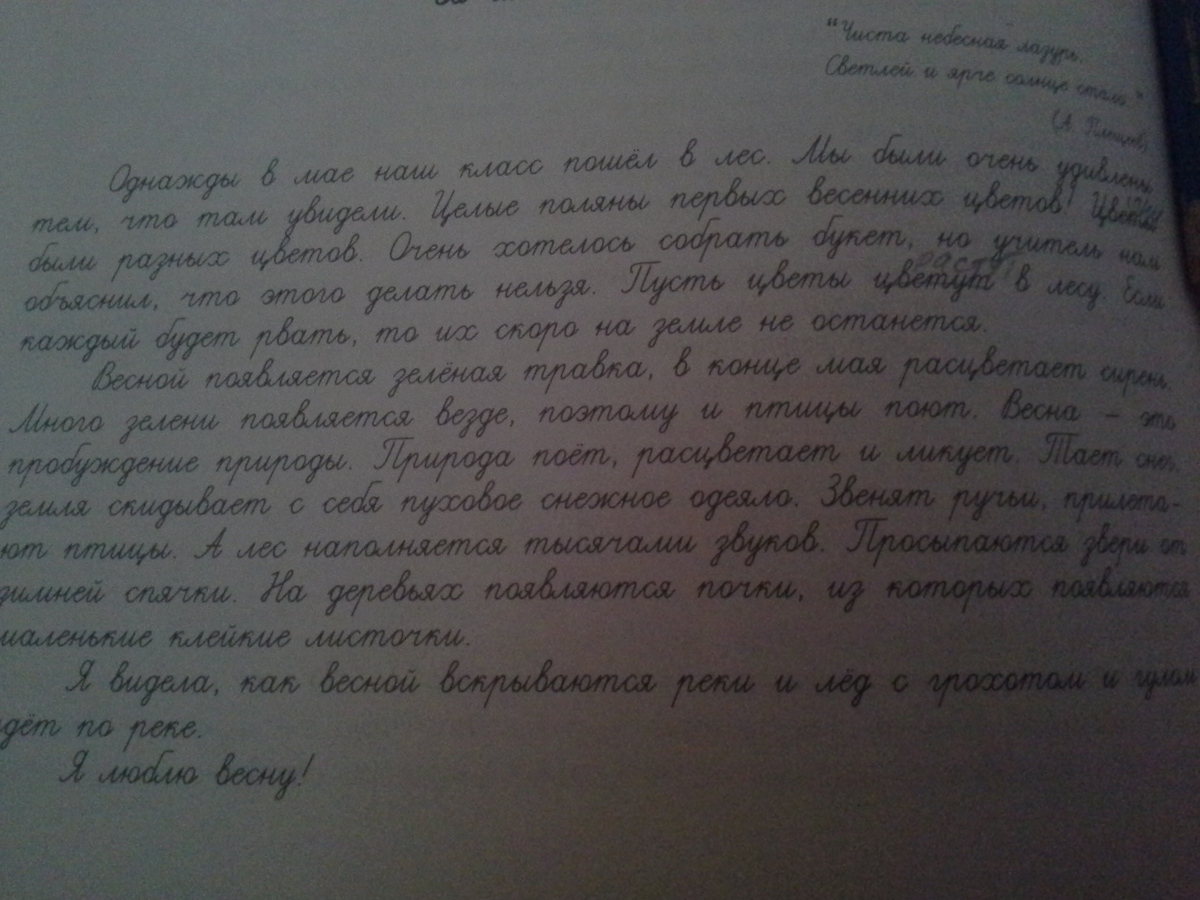 “Чиста небесная лазурь,
Светлей и ярче солнце стало.”
(А. Плещеев)
Однажды в мае наш класс пошёл в лес. Мы были очень удивлены
тем, что там увидели. Целые поляны первых весенних цветов!
были разных цветов. Очень хотелось собрать букет, но учитель нам
объяснил, что этого делать нельзя. Пусть цветы цветут в лесу. Если
каждый будет рвать, то их скоро на земле не останется.
Весной появляется зелёная травка, в конце мая расцветает сирень.
Много зелени появляется везде, поэтому и птицы поют. Весна – это
пробуждение природы. Природа поёт, расцветает и ликует. Тает снег,
земля скидывает с себя пуховое снежное одеяло. Звенят ручьи, прилета-
ют птицы. А лес наполняется тысячами звуков. Просыпаются звери от
зимней спячки. На деревьях появляются почки, из которых появляются
маленькие клейкие листочки.
Я видела, как весной вскрываются реки и лёд с грохотом и гулом
идёт по реке.
Я люблю весну!